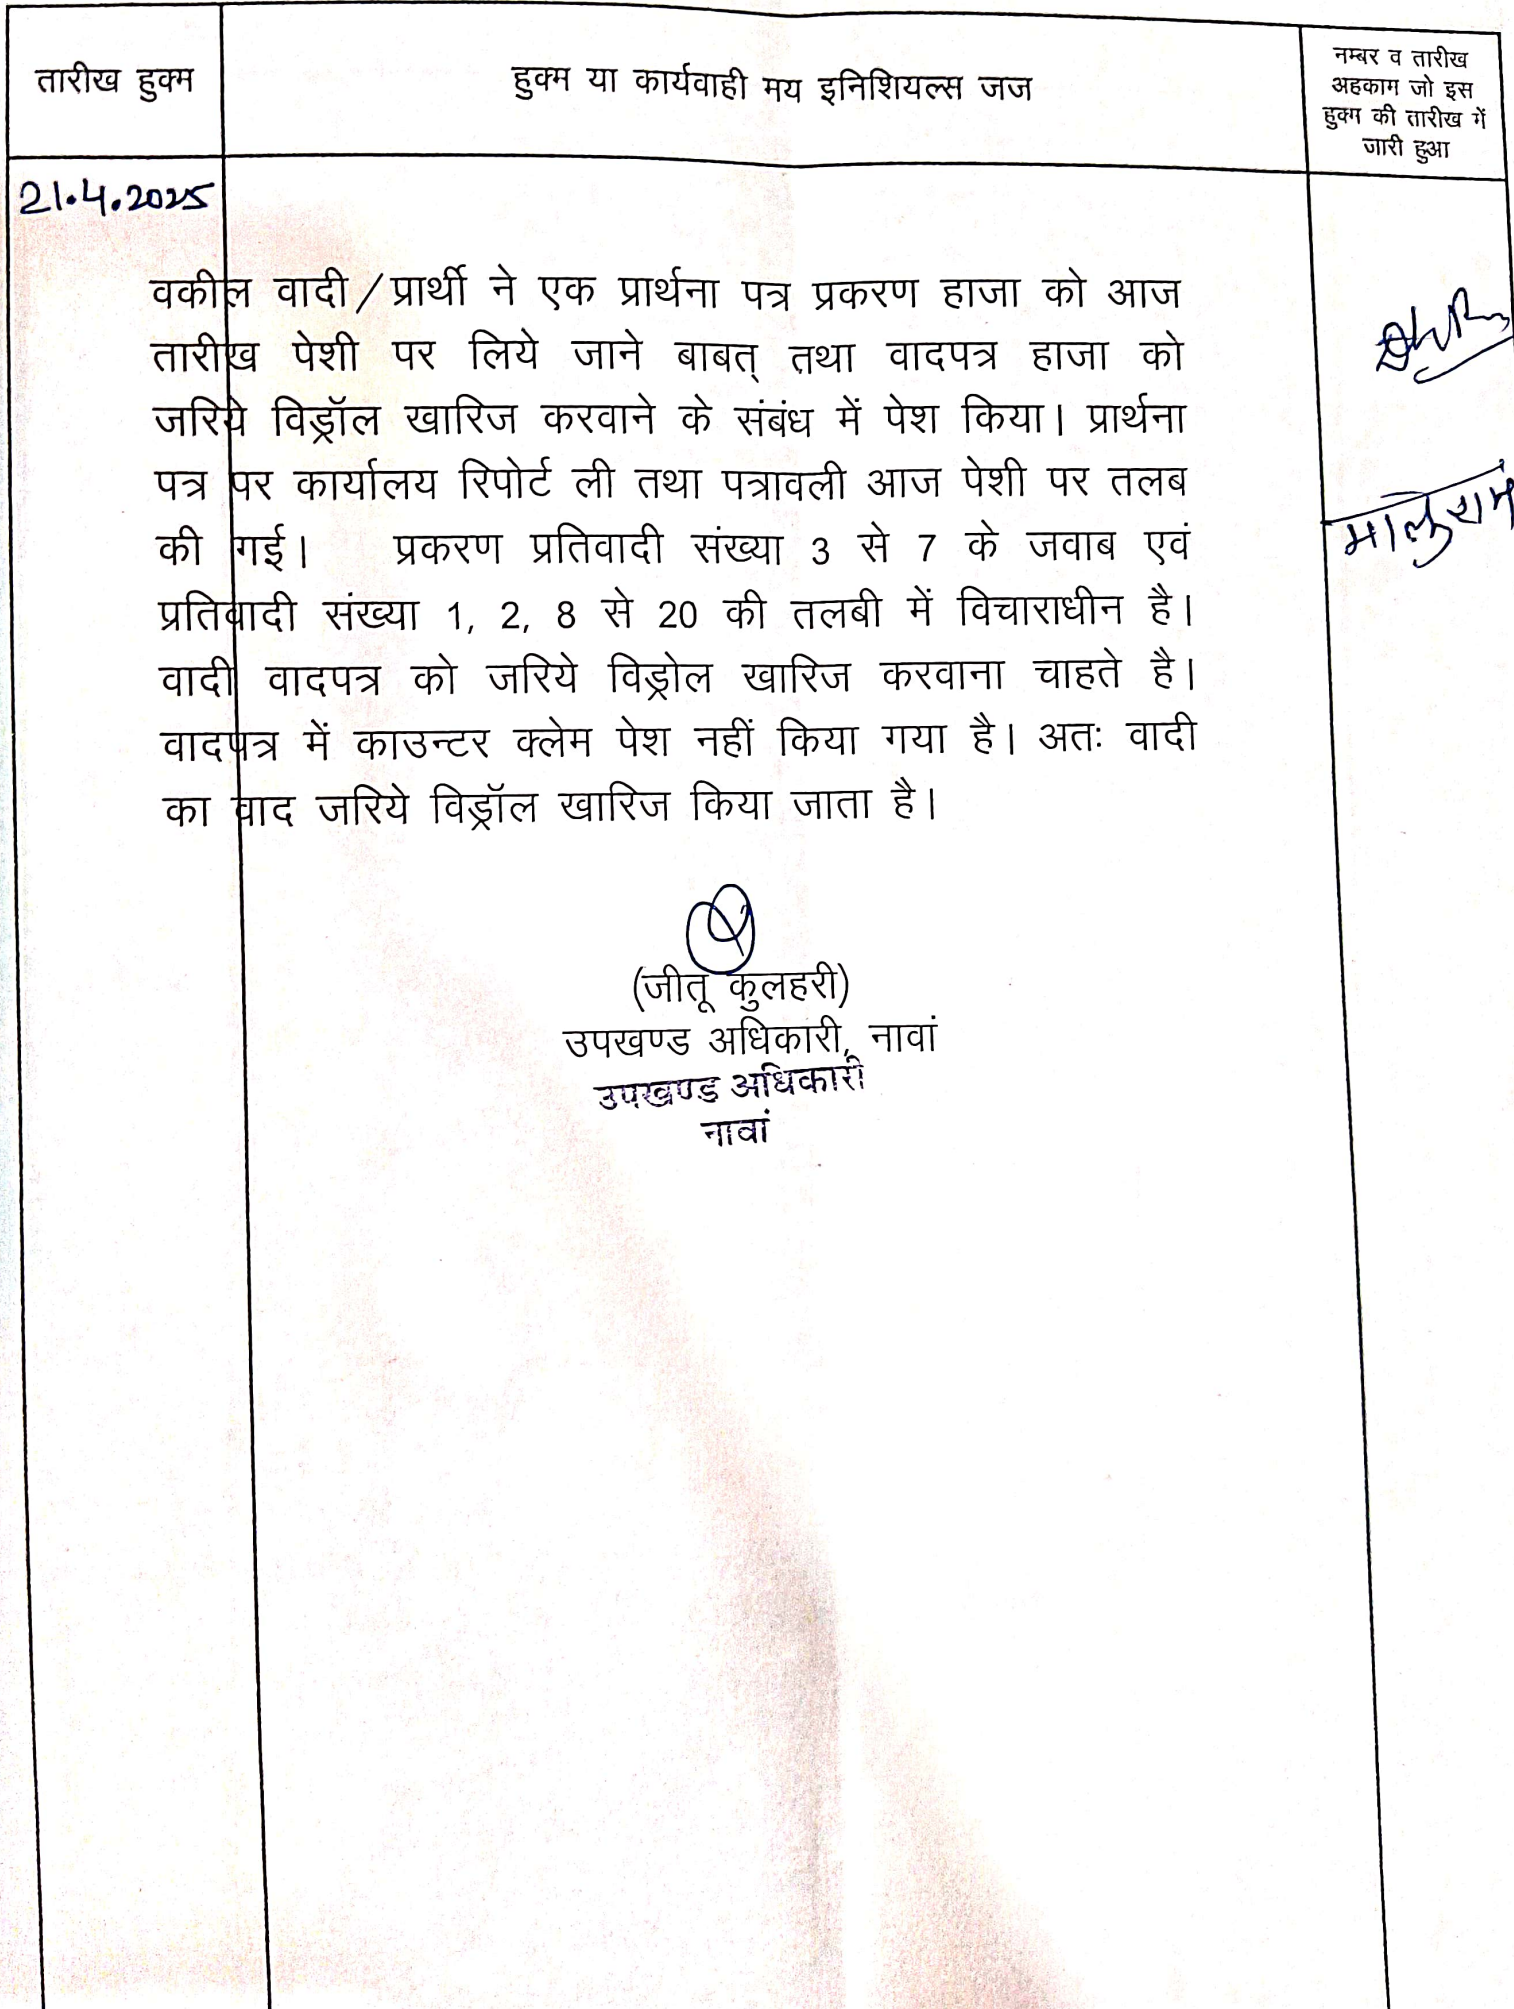 तारीख हुक्म
हुक्म या कार्यवाही मय इनिशियल्स जज
नम्बर व तारीख
अहकाम जो इस
हुक्म की तारीख में
जारी हुआ
21.4.2025
वकील वादी/प्रार्थी ने एक प्रार्थना पत्र प्रकरण हाजा को आज
तारीख पेशी पर लिये जाने बाबत् तथा वादपत्र हाजा को
जरिये विड्रॉल खारिज करवाने के संबंध में पेश किया। प्रार्थना
पत्र पर कार्यालय रिपोर्ट ली तथा पत्रावली आज पेशी पर तलब
की गई। प्रकरण प्रतिवादी संख्या 3 से 7 के जवाब एवं
प्रतिवादी संख्या 1, 2, 8 से 20 की तलबी में विचाराधीन है।
वादी वादपत्र को जरिये विड्रोल खारिज करवाना चाहते है।
वादपत्र में काउन्टर क्लेम पेश नहीं किया गया है। अतः वादी
का वाद जरिये विड्रॉल खारिज किया जाता है।
मालुराम
(जीतू कुलहरी)
उपखण्ड अधिकारी, नावां
उपखण्ड अधिकारी
नावां